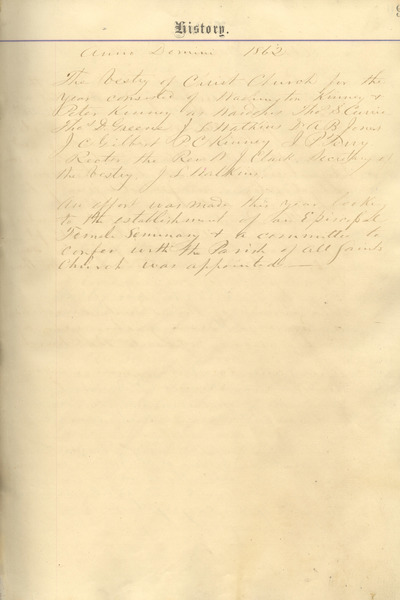 History.
Anno Domini 1862
The Vestry of Christ Church for the
year consisted of Washington Kinney &
Peter Kinney as Wardens Thos S Currie
Thos D. Greene J L Watkins Dr A B Jones
J C Gilbert P C Kinney J P Terry
Rector the Rev. N J Clark Secretary of
the Vestry. J L Watkins
An effort was made this year looking
to the establishment of an Episcopal
Female Seminary & a committee to
confer with the Parish of All Saints
Church was appointed —